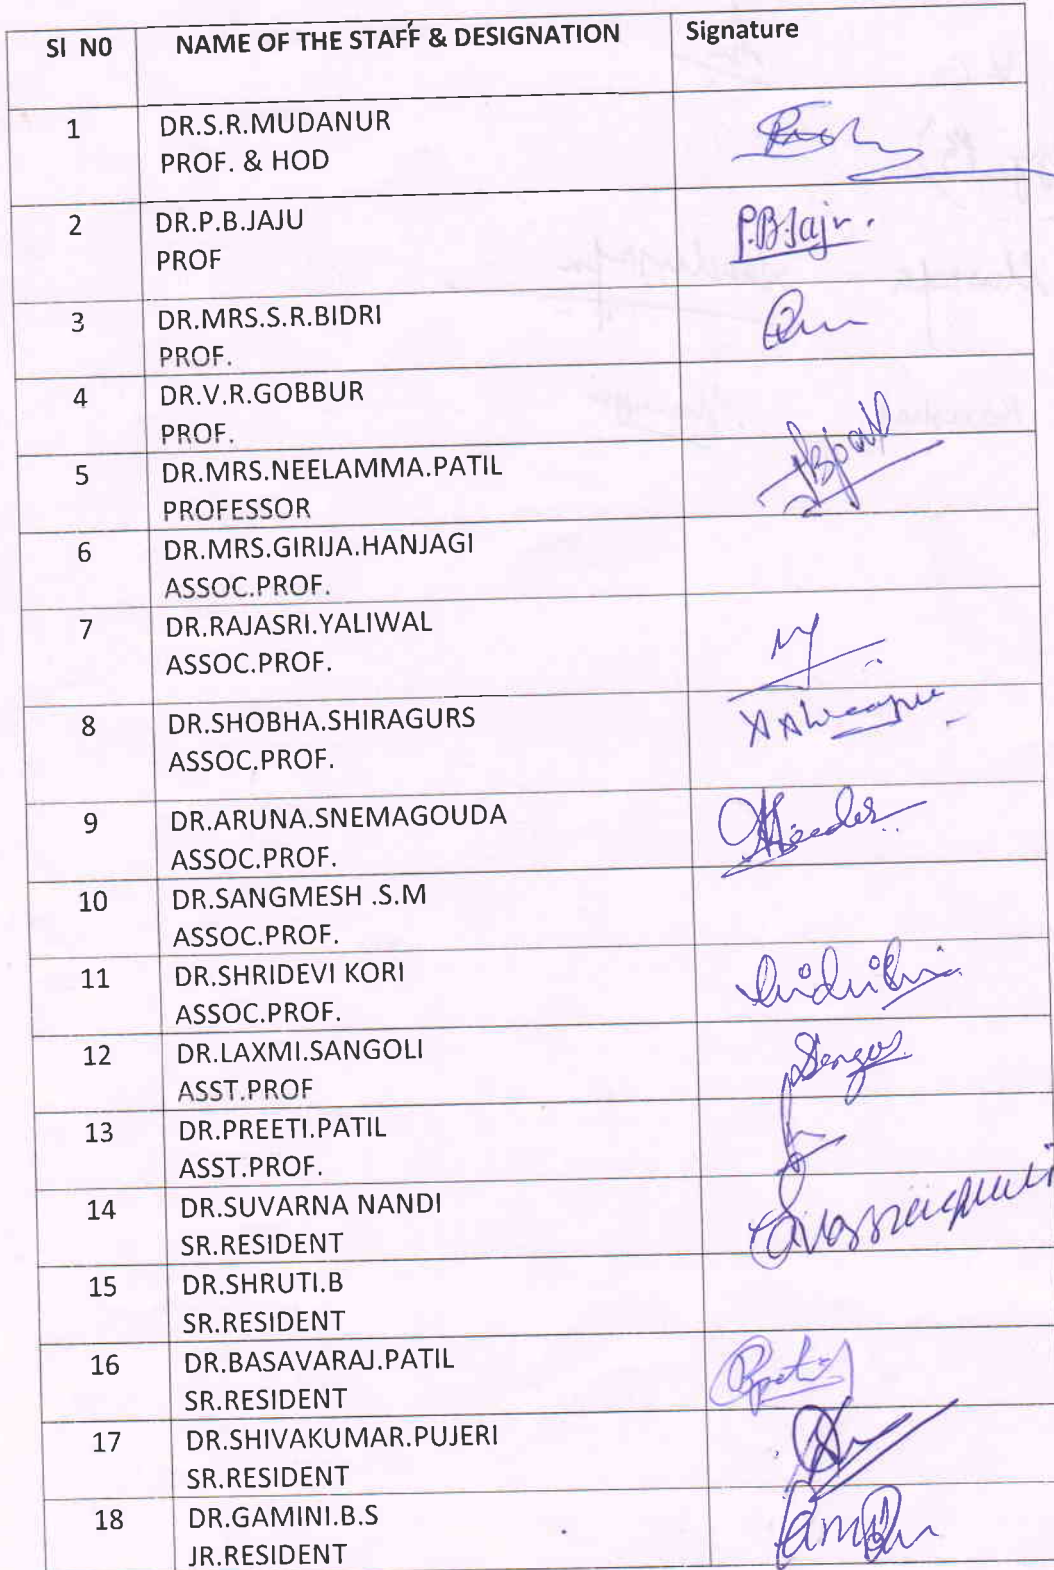 Sl N0 NAME OF THE STAFF & DESIGNATION Signature
1 DR.S.R.MUDANUR
PROF. & HOD
2 DR.P.B.JAJU P.B.Jaju.
PROF
3 DR.MRS.S.R.BIDRI
PROF.
4 DR.V.R.GOBBUR
PROF.
5 DR.MRS.NEELAMMA.PATIL
PROFESSOR
6 DR.MRS.GIRIJA.HANJAGI
ASSOC.PROF.
7 DR.RAJASRI.YALIWAL
ASSOC.PROF.
8 DR.SHOBHA.SHIRAGURS
ASSOC.PROF.
9 DR.ARUNA.SNEMAGOUDA
ASSOC.PROF.
10 DR.SANGMESH .S.M
ASSOC.PROF.
11 DR.SHRIDEVI KORI
ASSOC.PROF.
12 DR.LAXMI.SANGOLI
ASST.PROF
13 DR.PREETI.PATIL
ASST.PROF.
14 DR.SUVARNA NANDI
SR.RESIDENT
15 DR.SHRUTI.B
SR.RESIDENT
16 DR.BASAVARAJ.PATIL
SR.RESIDENT
17 DR.SHIVAKUMAR.PUJERI
SR.RESIDENT
18 DR.GAMINI.B.S
JR.RESIDENT